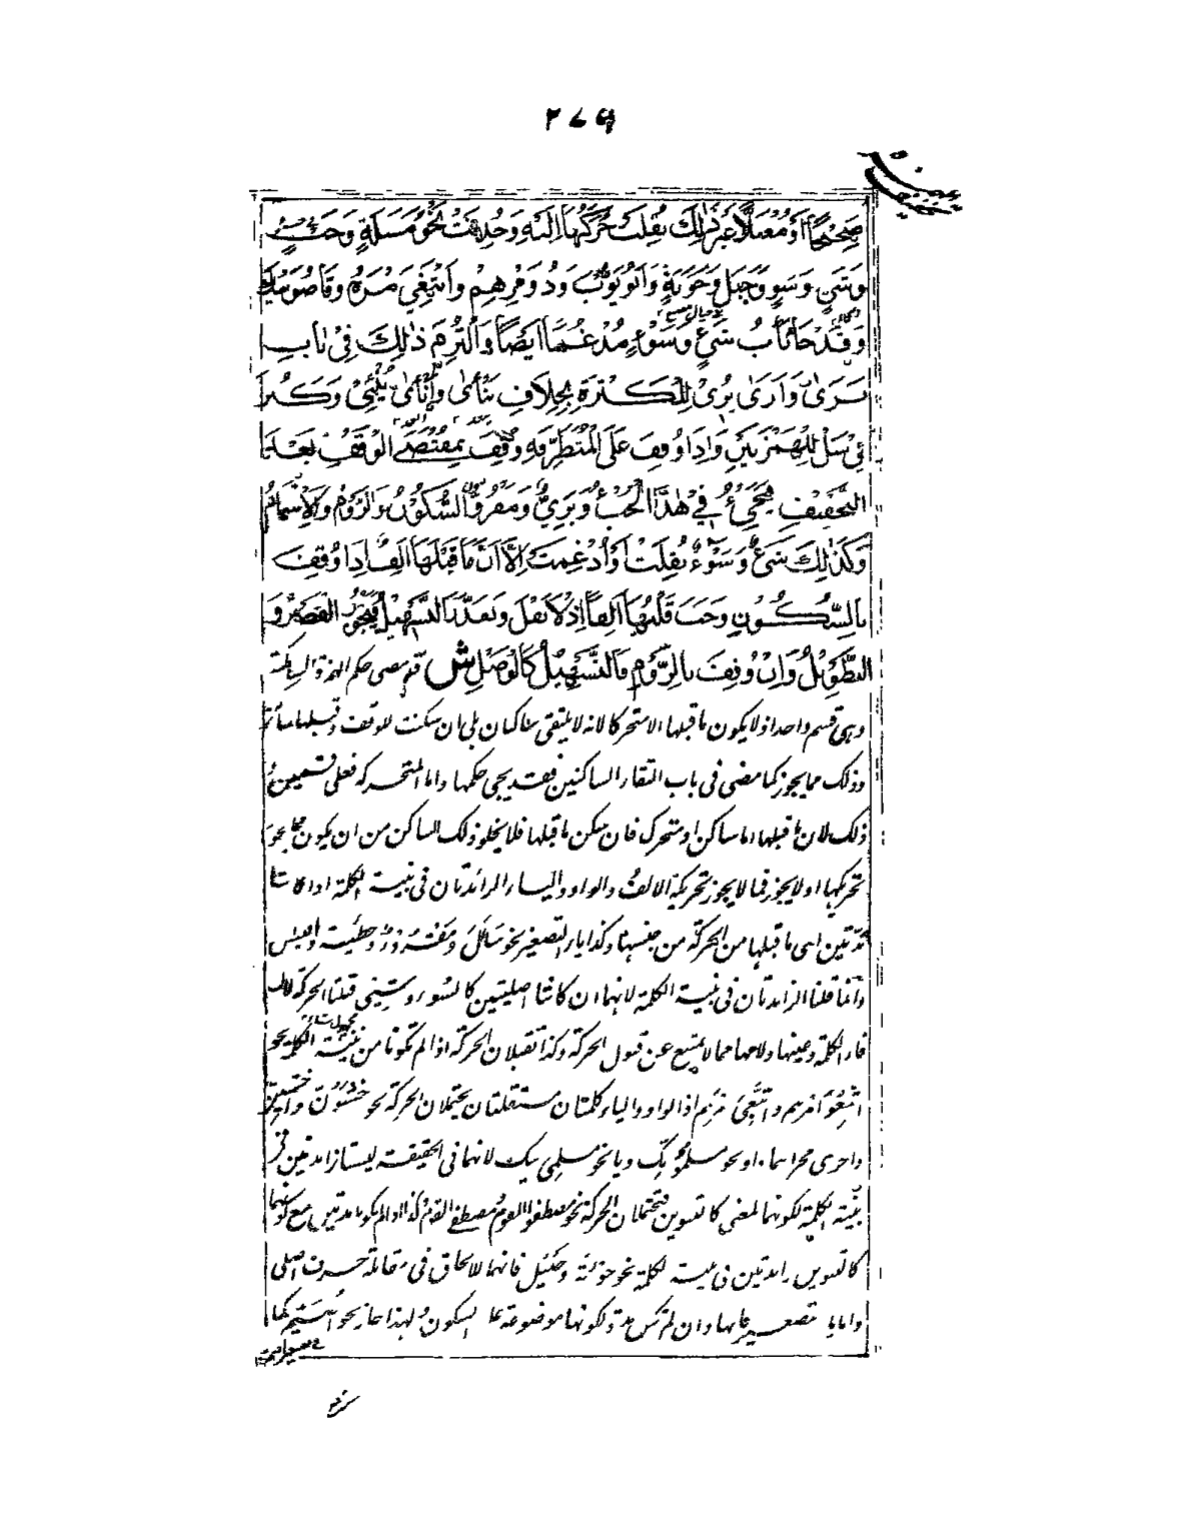 ٢٧٩
صَحِيْحًا أَوْ مُعْتَلًّا غَيْرَ ذٰلِكَ نُقِلَتْ حَرَكَتُهَا اِلَيْهِ وَحُذِفَتْ نَحْوُ مَسَلَةٍ وَخَبٍ
وَشَيٍ وَسَوٍ وَجَيَلٍ وَحَوَبَةٍ وَاَبُوَيُّوْبَ وَذُوَمْرِهِمْ وَاتَّبِعِيَ مْرَهُ وَقَاضُوَبِيْكَ
وَقَدْ جَاءَ بَابُ شَيْءٍ وَسَوْءٍ مُدْغَمًا اَيْضًا وَالْتُزِمَ ذٰلِكَ فِيْ بَابِ
يَرٰى وَاَرٰى يُرِيْ لِلْكَثْرَةِ بِخِلَافِ يَنْأٰى وَأَنْأٰى يُنْئِيْ وَكَثُرَ
فِيْ سَلْ لِلْهَمْزَتَيْنِ وَاِذَا وُقِفَ عَلَى الْمُتَطَرِّفَةِ وُقِفَ بِمُقْتَضَى الْوَقْفِ بَعْدَ
التَّخْفِيْفِ فَيَجِيْءُ فِيْ هٰذَا الْخَبُ وَبَرِيٌّ وَمَقْرُوٌّ السُّكُوْنُ وَالرَّوْمُ وَالْاِشْمَامُ
وَكَذٰلِكَ شَيْءٌ وَسَوْءٌ نُقِلَتْ اَوْ اُدْغِمَتْ اِلَّا اَنَّ مَا قَبْلَهَا اَلِفٌ اِذَا وُقِفَ
بِالسُّكُوْنِ وَجَبَ قَلْبُهَا اَلِفًا اِذْ لَا نَقْلَ وَتَعَذَّرَ التَّسْهِيْلُ فَيَجُوْزُ الْقَصْرُ وَ
التَّطْوِيْلُ وَاِنْ وُقِفَ بِالرَّوْمِ فَالتَّسْهِيْلُ كَالْوَصْلِ ش قد مضى حكم الهمزة الساكنة
وهي قسم واحد اذ لا يكون ما قبلها الا متحركا لانه لا يلتقي ساكنان بلى ان سكنت للوقف وقبلها ساكن
وذلك مما يجوز كما مضى في باب التقاء الساكنين فقد يجي حكمها واما المتحركة فعلى قسمين
ذلك لان ما قبلها اما ساكن او متحرك فان سكن ما قبلها فلا يخلو ذلك الساكن من ان يكون مما يجوز
تحريكها اولا يجوز فما لا يجوز تحريكه الالف والواو والياء الزائدتان في بنية الكلمة اذا كانتا
مدتين اي ما قبلها من الحركة من جنسهما وكذا ياء التصغير نحو سائل ومقروءة وخطيئة وافيئس
وانما قلنا الزائدتان في بنية الكلمة لانهما ان كانتا اصليتين كالسوء وسيئي قبلتا الحركة لان
فاء الكلمة وعينها ولامها مما لا يمتنع عن قبول الحركة وكذا تقبلان الحركة اذا لم تكونا من بنية الكلمة نحو
اتبعوا امرهم واتبعي امرهم اذ الواو والياء كلمتان مستقلتان تحتملان الحركة نحو اخشون واخشين
واجري مجراهما واو نحو مسلمو ابيك وياء نحو مسلمي ابيك لانهما في الحقيقة ليستا زائدتين في
بنية الكلمة لكونهما لمعنى كالتنوين فتحتملان الحركة نحو مصطفو القوم ومصطفي القوم كذا اذا لم تكونا مدتين مع كونهما
كالتنوين زائدتين في بنية الكلمة نحو حوءبة وجيئل فانهما للالحاق في مقابلة حرف اصلي
واما ياء التصغير فانها وان لم تكن مدة لكونها موضوعة على السكون ولهذا جاز نحو اصيم كما